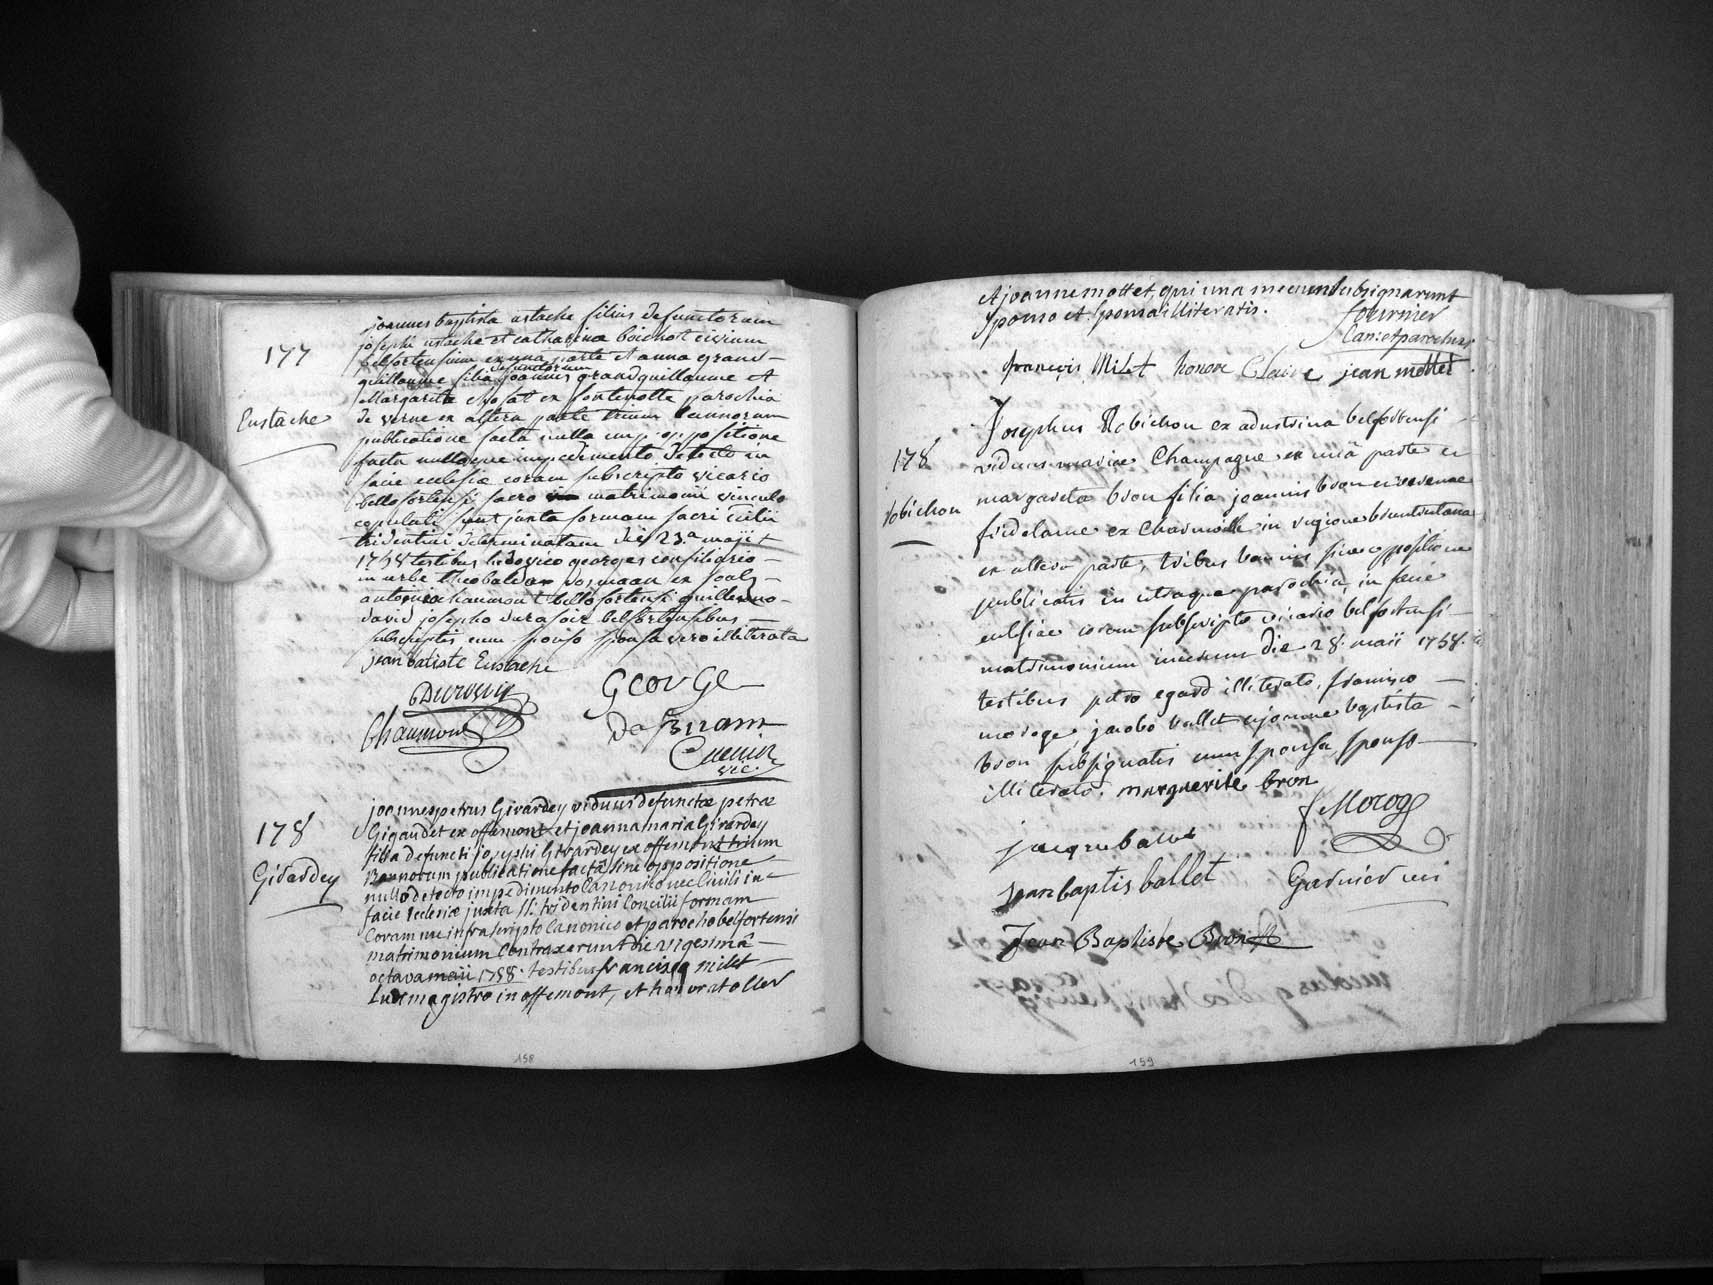 177
Eustache
joannes baptista ustache filius defunctorum
josephi ustache et catharina boichot civium
belfortensium ex una parte et anna grand-
guillaume filia joannis defunctorum grandguillaume et
Margarita ex fontenotte parochia
de verne ex altera parte trium bannorum
publicatione facta nulla oppositione
facta nulloque impedimento detecto in
facie ecclesiæ coram subscripto vicario
bellofortensi sacro matrimonii vinculo
copulati sunt juxta formam sacri
tridentini determinatam die 23.a maji
1758 testibus ludovico georges consiliario
in urbe theobaldo ex
antonio chaumont bellofortensi guillermo
david josepho belfortensibus
subscriptis cum sponso sponsa vero illiterata
jean batiste Eustache
GeorGe
Chaumont
Cuenin
vic.
178
Girardey
joannes petrus Girardey viduus defunctæ petræ
Gigaudet ex offemont et joanna maria Girardey
filia defuncti josephi Girardey ex offemont trium
Bannorum publicatione facta sine oppositione
nullo detecto impedimento Canonico nec Civili in
facie Ecclesiæ juxta SS. tridentini Concilii formam
Coram me infrascripto Canonico et parocho belfortensi
matrimonium Contraxerunt die vigesimâ
octava maii 1758. testibus francisco milet
Ludimagistro in offemont, et honorato Cler
158
et joanne mottet, qui una mecum subsignarunt
sponso et sponsa illiteratis.
fournier
Can: et parochus
françois Milet honore Claire jean mottet
178
Robichon
Josephus Robichon ex belfortensi
viduus mariæ Champagne ex unâ parte et
margareta bron filia joannis bron et verenæ
fridelance ex Charmoille in regione bruntrutana
ex altera parte, tribus bannis sine oppositione
publicatis in utraque parochia, in facie
ecclesiæ coram subscripto vicario belfortensi
matrimonium inierunt die 28. maii 1758.
testibus petro egard illiterato, francisco
moroge jacobo ballet et joanne baptista
bron subsignatis cum sponsa, sponso
illiterato. marguerite bron
f Moroge
jacque balet
jean baptis ballet
Garnier vic
Jean Baptiste Bron
159